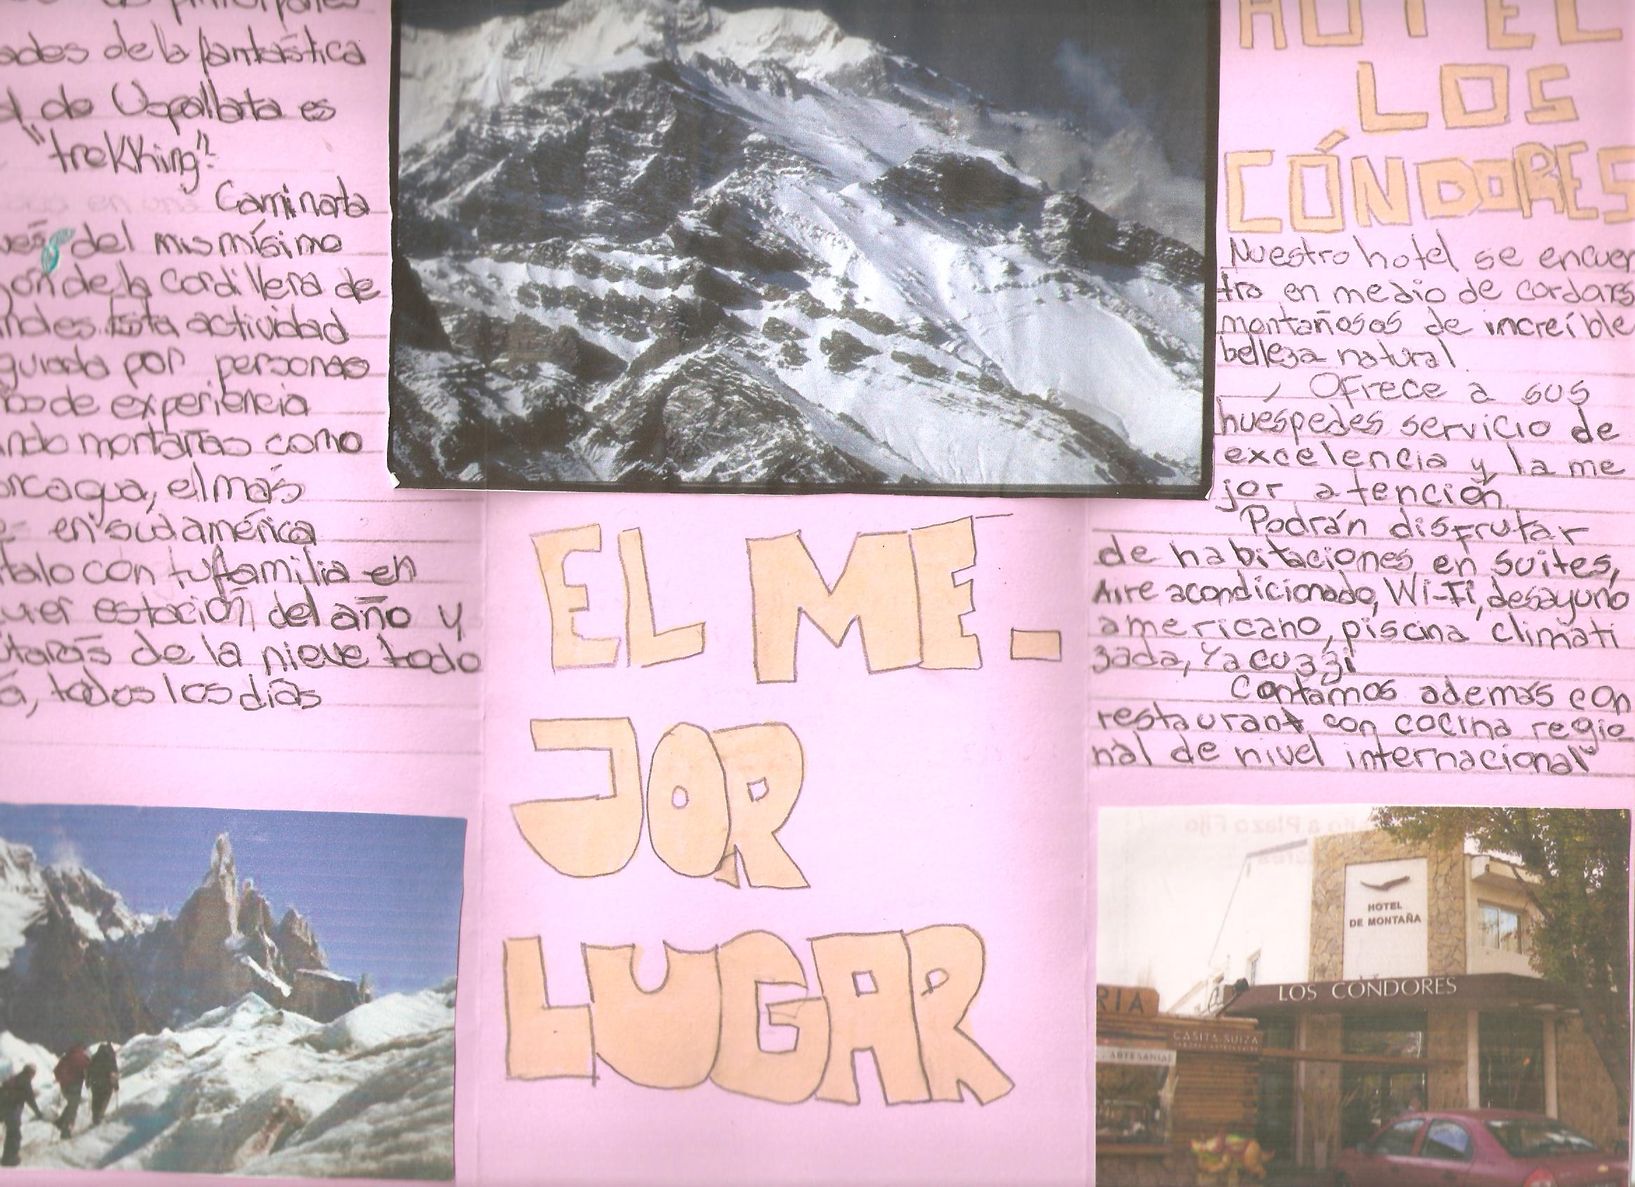 ades de la fantástica
de Uspallata es
"treKKing".
Caminata
del mismísimo
de la Cordillera de
ndes. Esta actividad
guiada por personas
de experiencia
ando montañas como
orcagua, el más
en sudamérica
talo con tu familia en
uier estación del año y
utarás de la nieve todo
a, todos los días
EL ME-
JOR
LUGAR
HOTEL
LOS
CÓNDORES
Nuestro hotel se encuen
tra en medio de cordones
montañosos de increíble
belleza natural.
Ofrece a sus
huéspedes servicio de
excelencia y la me
jor atención.
Podrán disfrutar
de habitaciones en suites,
Aire acondicionado, Wi-Fi, desayuno
americano, piscina climati
zada, Yacuzzi
Contamos además con
restaurant con cocina regio
nal de nivel internacional
HOTEL
DE MONTAÑA
LOS CONDORES
RIA
CASITA SUIZA
ARTESANAL